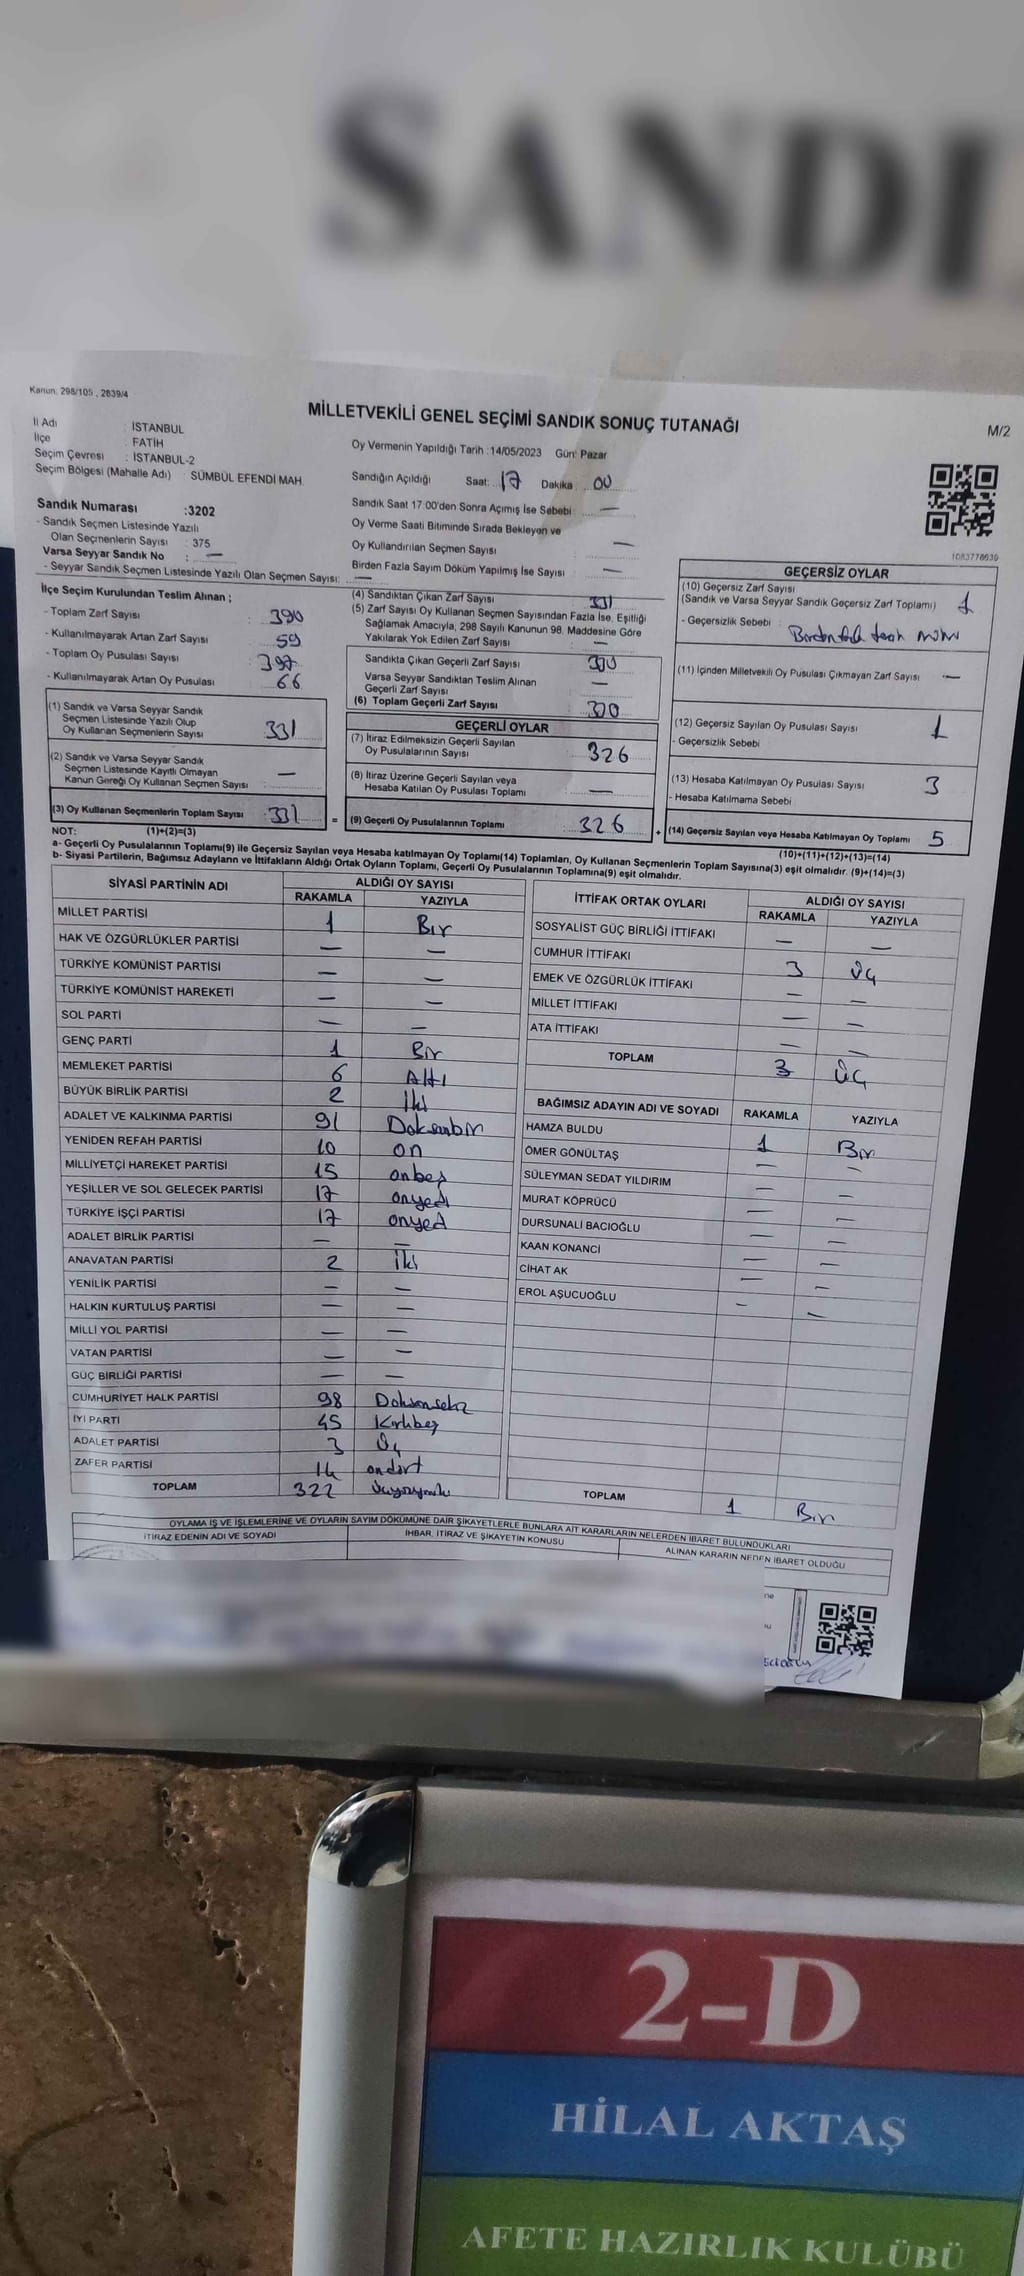 SANDI
Kanun: 298/105 , 2839/4
MİLLETVEKİLİ GENEL SEÇİMİ SANDIK SONUÇ TUTANAĞI
M/2
İl Adı : İSTANBUL
İlçe : FATİH
Seçim Çevresi : İSTANBUL-2
Seçim Bölgesi (Mahalle Adı) : SÜMBÜL EFENDİ MAH.
Oy Vermenin Yapıldığı Tarih :14/05/2023 Gün: Pazar
Sandığın Açıldığı Saat: 17 Dakika : 00
Sandık Saat 17:00'den Sonra Açımış İse Sebebi : —
Oy Verme Saati Bitiminde Sırada Bekleyen ve
Oy Kullandırılan Seçmen Sayısı : —
Birden Fazla Sayım Döküm Yapılmış İse Sayısı : —
Sandık Numarası :3202
- Sandık Seçmen Listesinde Yazılı
Olan Seçmenlerin Sayısı : 375
Varsa Seyyar Sandık No : —
- Seyyar Sandık Seçmen Listesinde Yazılı Olan Seçmen Sayısı: —
1083778639
İlçe Seçim Kurulundan Teslim Alınan ;
- Toplam Zarf Sayısı : 390
- Kullanılmayarak Artan Zarf Sayısı : 59
- Toplam Oy Pusulası Sayısı : 397
- Kullanılmayarak Artan Oy Pusulası : 66
(1) Sandık ve Varsa Seyyar Sandık
Seçmen Listesinde Yazılı Olup
Oy Kullanan Seçmenlerin Sayısı : 331
(2) Sandık ve Varsa Seyyar Sandık
Seçmen Listesinde Kayıtlı Olmayan
Kanun Gereği Oy Kullanan Seçmen Sayısı : —
(3) Oy Kullanan Seçmenlerin Toplam Sayısı : 331
(1)+(2)=(3)
(4) Sandıktan Çıkan Zarf Sayısı : 331
(5) Zarf Sayısı Oy Kullanan Seçmen Sayısından Fazla İse, Eşitliği
Sağlamak Amacıyla, 298 Sayılı Kanunun 98. Maddesine Göre
Yakılarak Yok Edilen Zarf Sayısı : —
Sandıkta Çıkan Geçerli Zarf Sayısı : 330
Varsa Seyyar Sandıktan Teslim Alınan
Geçerli Zarf Sayısı : —
(6) Toplam Geçerli Zarf Sayısı : 330
GEÇERLİ OYLAR
(7) İtiraz Edilmeksizin Geçerli Sayılan
Oy Pusulalarının Sayısı : 326
(8) İtiraz Üzerine Geçerli Sayılan veya
Hesaba Katılan Oy Pusulası Toplamı : —
= (9) Geçerli Oy Pusulalarının Toplamı : 326 +
GEÇERSİZ OYLAR
(10) Geçersiz Zarf Sayısı
(Sandık ve Varsa Seyyar Sandık Geçersiz Zarf Toplamı) : 1
- Geçersizlik Sebebi :
(11) İçinden Milletvekili Oy Pusulası Çıkmayan Zarf Sayısı : —
(12) Geçersiz Sayılan Oy Pusulası Sayısı : 1
- Geçersizlik Sebebi
(13) Hesaba Katılmayan Oy Pusulası Sayısı : 3
- Hesaba Katılmama Sebebi
(14) Geçersiz Sayılan veya Hesaba Katılmayan Oy Toplamı : 5
(10)+(11)+(12)+(13)=(14)
NOT:
a- Geçerli Oy Pusulalarının Toplamı(9) ile Geçersiz Sayılan veya Hesaba katılmayan Oy Toplamı(14) Toplamları, Oy Kullanan Seçmenlerin Toplam Sayısına(3) eşit olmalıdır. (9)+(14)=(3)
b- Siyasi Partilerin, Bağımsız Adayların ve İttifakların Aldığı Ortak Oyların Toplamı, Geçerli Oy Pusulalarının Toplamına(9) eşit olmalıdır.
SİYASİ PARTİNİN ADI ALDIĞI OY SAYISI
RAKAMLA YAZIYLA
MİLLET PARTİSİ 1 Bir
HAK VE ÖZGÜRLÜKLER PARTİSİ — —
TÜRKİYE KOMÜNİST PARTİSİ — —
TÜRKİYE KOMÜNİST HAREKETİ — —
SOL PARTİ — —
GENÇ PARTİ 1 Bir
MEMLEKET PARTİSİ 6 Altı
BÜYÜK BİRLİK PARTİSİ 2 İki
ADALET VE KALKINMA PARTİSİ 91 Doksanbir
YENİDEN REFAH PARTİSİ 10 on
MİLLİYETÇİ HAREKET PARTİSİ 15 onbeş
YEŞİLLER VE SOL GELECEK PARTİSİ 17 onyedi
TÜRKİYE İŞÇİ PARTİSİ 17 onyedi
ADALET BİRLİK PARTİSİ — —
ANAVATAN PARTİSİ 2 İki
YENİLİK PARTİSİ — —
HALKIN KURTULUŞ PARTİSİ — —
MİLLİ YOL PARTİSİ — —
VATAN PARTİSİ — —
GÜÇ BİRLİĞİ PARTİSİ — —
CUMHURİYET HALK PARTİSİ 98 Doksansekiz
İYİ PARTİ 45 Kırkbeş
ADALET PARTİSİ 3 Üç
ZAFER PARTİSİ 14 ondört
TOPLAM 322
İTTİFAK ORTAK OYLARI ALDIĞI OY SAYISI
RAKAMLA YAZIYLA
SOSYALİST GÜÇ BİRLİĞİ İTTİFAKI — —
CUMHUR İTTİFAKI 3 Üç
EMEK VE ÖZGÜRLÜK İTTİFAKI — —
MİLLET İTTİFAKI — —
ATA İTTİFAKI — —
TOPLAM 3 ÜÇ
BAĞIMSIZ ADAYIN ADI VE SOYADI RAKAMLA YAZIYLA
HAMZA BULDU 1 Bir
ÖMER GÖNÜLTAŞ — —
SÜLEYMAN SEDAT YILDIRIM — —
MURAT KÖPRÜCÜ — —
DURSUNALİ BACIOĞLU — —
KAAN KONANCİ — —
CİHAT AK — —
EROL AŞUCUOĞLU — —
TOPLAM 1 Bir
OYLAMA İŞ VE İŞLEMLERİNE VE OYLARIN SAYIM DÖKÜMÜNE DAİR ŞİKAYETLERLE BUNLARA AİT KARARLARIN NELERDEN İBARET BULUNDUKLARI
İTİRAZ EDENİN ADI VE SOYADI İHBAR, İTİRAZ VE ŞİKAYETİN KONUSU ALINAN KARARIN NEDEN İBARET OLDUĞU
2-D
HİLAL AKTAŞ
AFETE HAZIRLIK KULÜBÜ